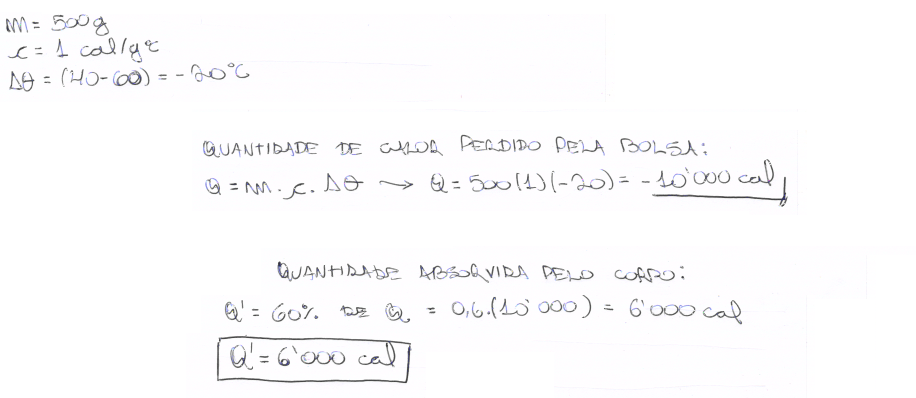 m = 500g
c = 1 cal/g°C
Δθ = (40-60) = -20°C
QUANTIDADE DE CALOR PERDIDO PELA BOLSA:
Q = m.c.Δθ → Q = 500(1)(-20) = -10'000 cal
QUANTIDADE ABSORVIDA PELO CORPO:
Q' = 60% DE Q = 0,6.(10'000) = 6'000 cal
Q' = 6'000 cal